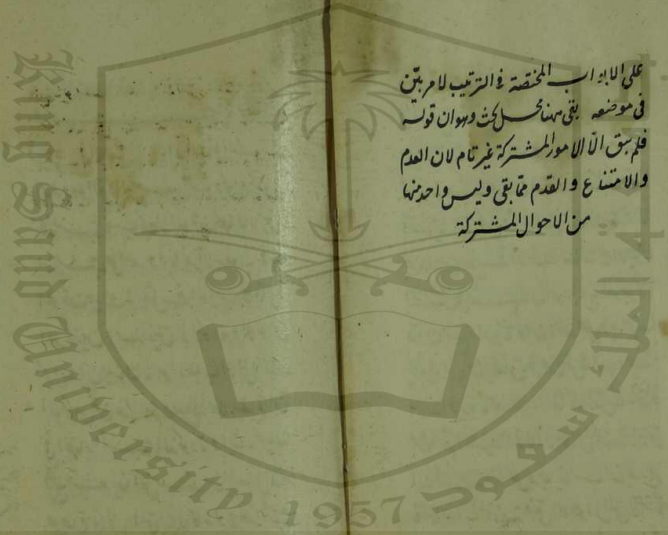 على الابواب المختصة فى الترتيب لامر بيّن
فى موضعه بقى ههنا محل بحث وهو ان قوله
فلم يبق الّا الامور المشتركة غير تام لان العدم
والامتناع والقدم ممّا بقى وليس واحد منها
من الاحوال المشتركة
King Saud University
1957
جامعة الملك سعود